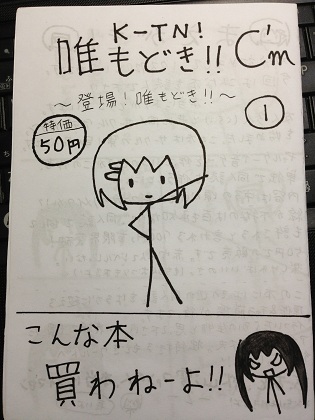 K-TN!
唯もどき!! C'm
～登場!唯もどき!!～
特価
50円
1
こんな本
買わねーよ!!